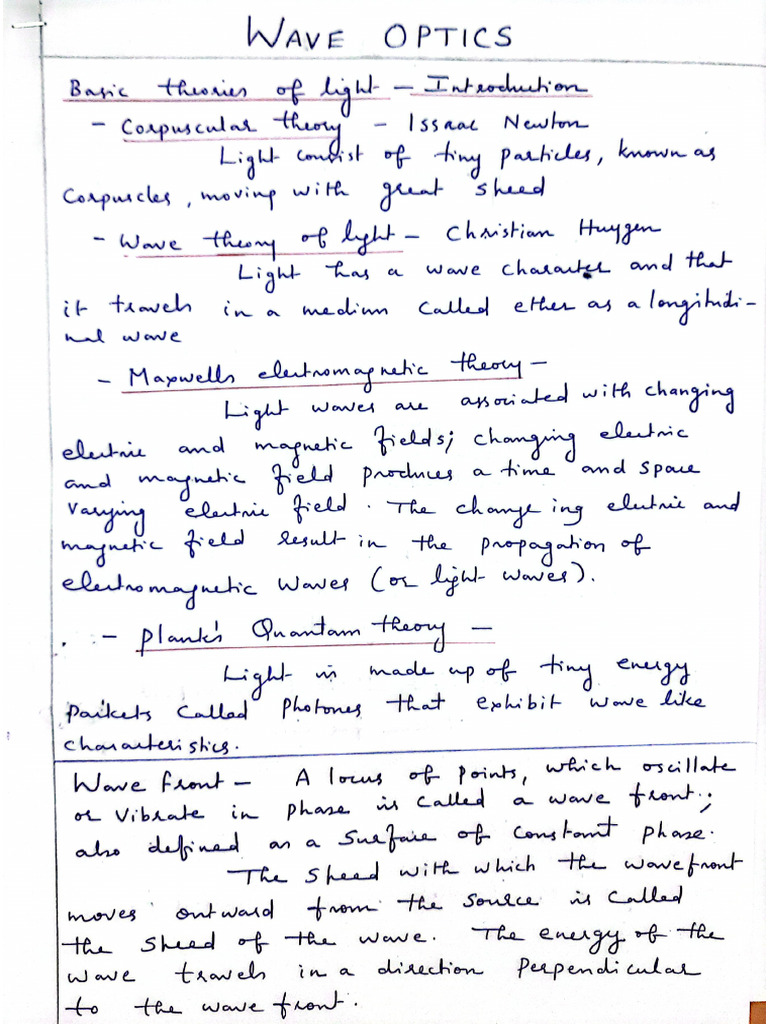 WAVE OPTICS
Basic theories of light - Introduction
- Corpuscular theory - Issac Newton
Light consist of tiny particles, known as
Corpuscles, moving with great speed
- Wave theory of light - Christian Huygen
Light has a wave character and that
it travels in a medium called ether as a longitudi-
nal wave
- Maxwells electromagnetic theory -
Light waves are associated with changing
electric and magnetic fields; changing electric
and magnetic field produces a time and space
varying electric field. The change ing electric and
magnetic field result in the propagation of
electromagnetic waves (or light waves).
- Plank's Quantam theory -
Light is made up of tiny energy
packets called photones that exhibit wave like
characteristics.
Wave front - A locus of points, which oscillate
or vibrate in phase is called a wave front;
also defined as a surface of constant phase.
The speed with which the wavefront
moves outward from the source is called
the speed of the wave. The energy of the
wave travels in a direction perpendicular
to the wave front.